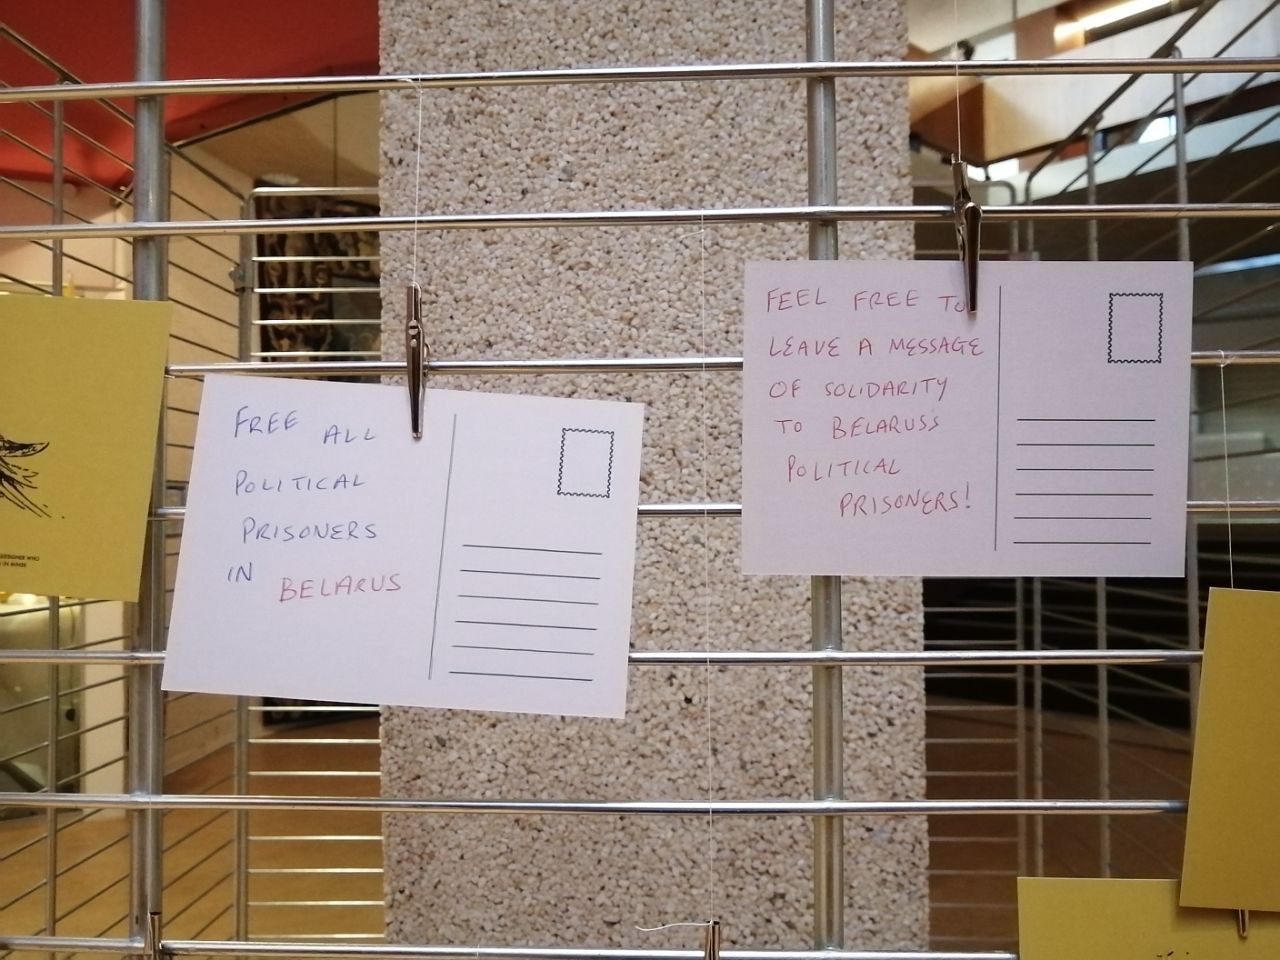 FREE ALL
POLITICAL
PRISONERS
IN BELARUS
FEEL FREE TO
LEAVE A MESSAGE
OF SOLIDARITY
TO BELARUSS
POLITICAL
PRISONERS!
DESIGNER WHO
IN MINSK